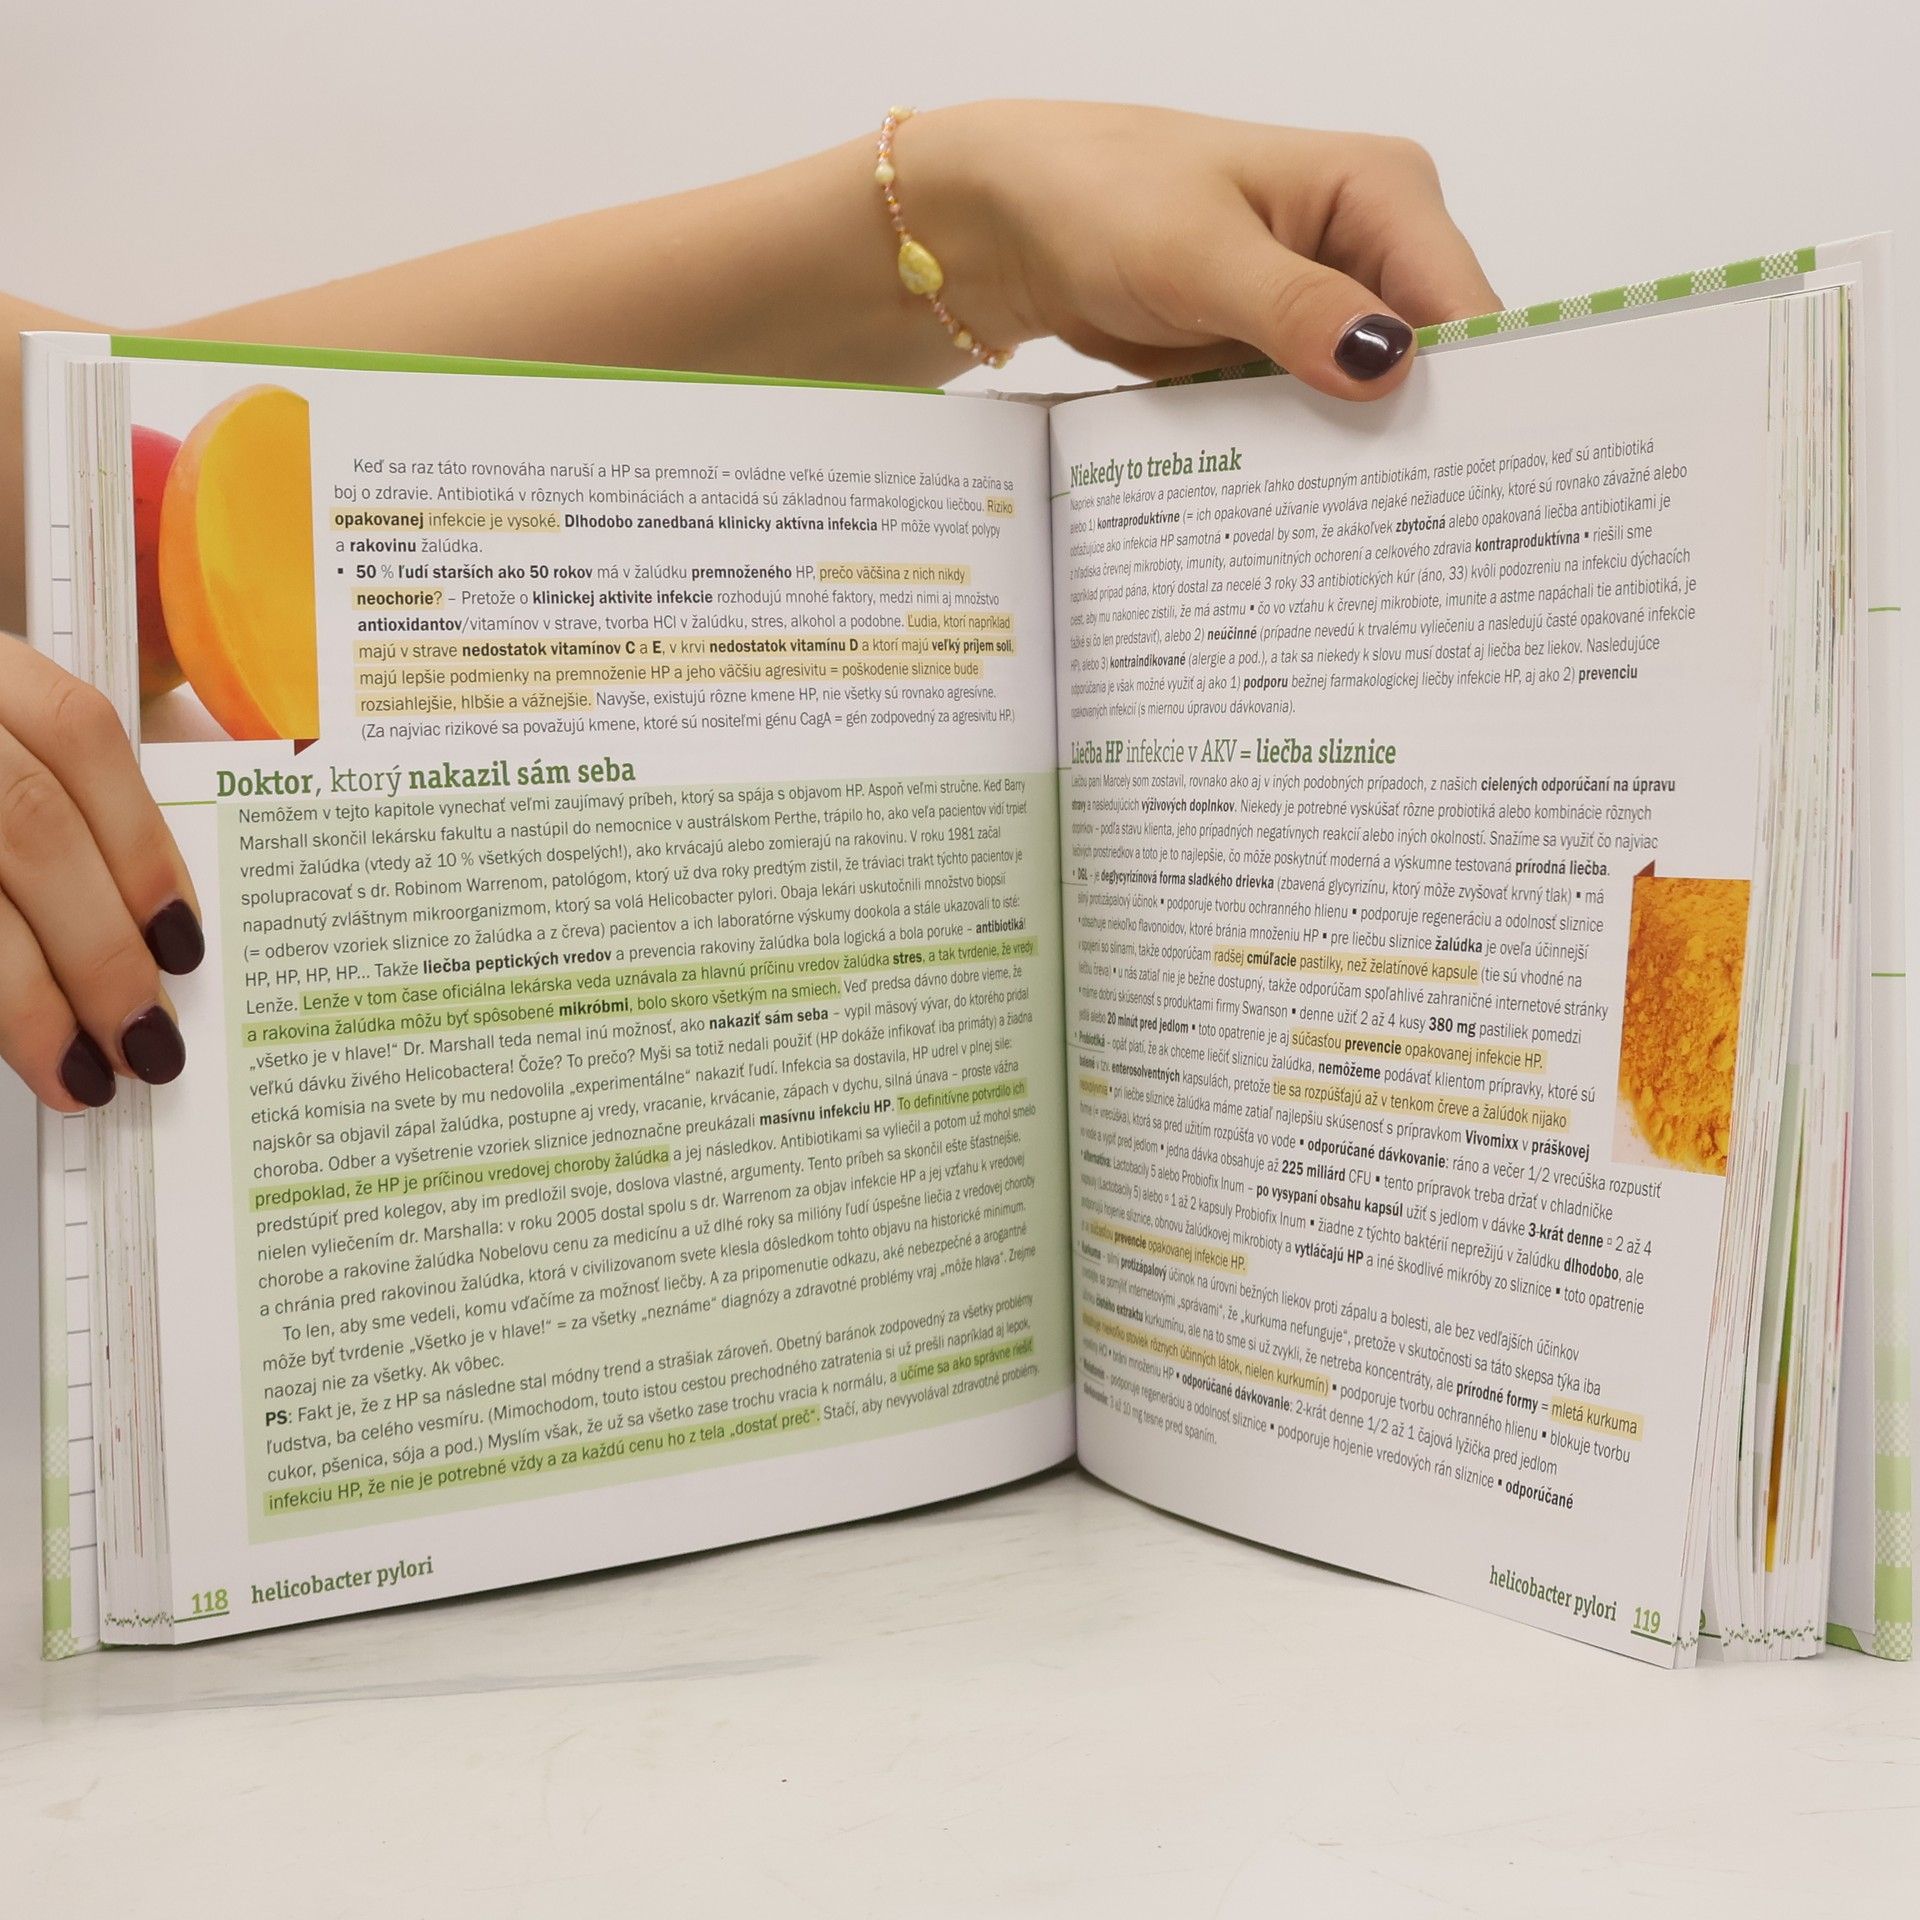 Keď sa raz táto rovnováha naruší a HP sa premnoží = ovládne veľké územie sliznice žalúdka a začína sa
boj o zdravie. Antibiotiká v rôznych kombináciách a antacidá sú základnou farmakologickou liečbou. Riziko
opakovanej infekcie je vysoké. Dlhodobo zanedbaná klinicky aktívna infekcia HP môže vyvolať polypy
a rakovinu žalúdka.
▪ 50 % ľudí starších ako 50 rokov má v žalúdku premnoženého HP, prečo väčšina z nich nikdy
neochorie? – Pretože o klinickej aktivite infekcie rozhodujú mnohé faktory, medzi nimi aj množstvo
antioxidantov/vitamínov v strave, tvorba HCl v žalúdku, stres, alkohol a podobne. Ľudia, ktorí napríklad
majú v strave nedostatok vitamínov C a E, v krvi nedostatok vitamínu D a ktorí majú veľký príjem soli,
majú lepšie podmienky na premnoženie HP a jeho väčšiu agresivitu = poškodenie sliznice bude
rozsiahlejšie, hlbšie a vážnejšie. Navyše, existujú rôzne kmene HP, nie všetky sú rovnako agresívne.
(Za najviac rizikové sa považujú kmene, ktoré sú nositeľmi génu CagA = gén zodpovedný za agresivitu HP.)
Doktor, ktorý nakazil sám seba
Nemôžem v tejto kapitole vynechať veľmi zaujímavý príbeh, ktorý sa spája s objavom HP. Aspoň veľmi stručne. Keď Barry
Marshall skončil lekársku fakultu a nastúpil do nemocnice v austrálskom Perthe, trápilo ho, ako veľa pacientov vidí trpieť
vredmi žalúdka (vtedy až 10 % všetkých dospelých!), ako krvácajú alebo zomierajú na rakovinu. V roku 1981 začal
spolupracovať s dr. Robinom Warrenom, patológom, ktorý už dva roky predtým zistil, že tráviaci trakt týchto pacientov je
napadnutý zvláštnym mikroorganizmom, ktorý sa volá Helicobacter pylori. Obaja lekári uskutočnili množstvo biopsií
(= odberov vzoriek sliznice zo žalúdka a z čreva) pacientov a ich laboratórne výskumy dookola a stále ukazovali to isté:
HP, HP, HP, HP... Takže liečba peptických vredov a prevencia rakoviny žalúdka bola logická a bola poruke – antibiotiká!
Lenže. Lenže v tom čase oficiálna lekárska veda uznávala za hlavnú príčinu vredov žalúdka stres, a tak tvrdenie, že vredy
a rakovina žalúdka môžu byť spôsobené mikróbmi, bolo skoro všetkým na smiech. Veď predsa dávno dobre vieme, že
„všetko je v hlave!“ Dr. Marshall teda nemal inú možnosť, ako nakaziť sám seba – vypil mäsový vývar, do ktorého pridal
veľkú dávku živého Helicobactera! Čože? To prečo? Myši sa totiž nedali použiť (HP dokáže infikovať iba primáty) a žiadna
etická komisia na svete by mu nedovolila „experimentálne“ nakaziť ľudí. Infekcia sa dostavila, HP udrel v plnej sile:
najskôr sa objavil zápal žalúdka, postupne aj vredy, vracanie, krvácanie, zápach v dychu, silná únava – proste vážna
choroba. Odber a vyšetrenie vzoriek sliznice jednoznačne preukázali masívnu infekciu HP. To definitívne potvrdilo ich
predpoklad, že HP je príčinou vredovej choroby žalúdka a jej následkov. Antibiotikami sa vyliečil a potom už mohol smelo
predstúpiť pred kolegov, aby im predložil svoje, doslova vlastné, argumenty. Tento príbeh sa skončil ešte šťastnejšie,
nielen vyliečením dr. Marshalla: v roku 2005 dostal spolu s dr. Warrenom za objav infekcie HP a jej vzťahu k vredovej
chorobe a rakovine žalúdka Nobelovu cenu za medicínu a už dlhé roky sa milióny ľudí úspešne liečia z vredovej choroby
a chránia pred rakovinou žalúdka, ktorá v civilizovanom svete klesla dôsledkom tohto objavu na historické minimum.
To len, aby sme vedeli, komu vďačíme za možnosť liečby. A za pripomenutie odkazu, aké nebezpečné a arogantné
môže byť tvrdenie „Všetko je v hlave!“ = za všetky „neznáme“ diagnózy a zdravotné problémy vraj „môže hlava“. Zrejme
naozaj nie za všetky. Ak vôbec.
PS: Fakt je, že z HP sa následne stal módny trend a strašiak zároveň. Obetný baránok zodpovedný za všetky problémy
ľudstva, ba celého vesmíru. (Mimochodom, touto istou cestou prechodného zatratenia si už prešli napríklad aj lepok,
cukor, pšenica, sója a pod.) Myslím však, že už sa všetko zase trochu vracia k normálu, a učíme sa ako správne riešiť
infekciu HP, že nie je potrebné vždy a za každú cenu ho z tela „dostať preč“. Stačí, aby nevyvolával zdravotné problémy.
118 helicobacter pylori
Niekedy to treba inak
Napriek snahe lekárov a pacientov, napriek ľahko dostupným antibiotikám, rastie počet prípadov, keď sú antibiotiká
alebo 1) kontraproduktívne (= ich opakované užívanie vyvoláva nejaké nežiaduce účinky, ktoré sú rovnako závažné alebo
obťažujúce ako infekcia HP samotná ▪ povedal by som, že akákoľvek zbytočná alebo opakovaná liečba antibiotikami je
z hľadiska črevnej mikrobioty, imunity, autoimunitných ochorení a celkového zdravia kontraproduktívna ▪ riešili sme
napríklad prípad pána, ktorý dostal za necelé 3 roky 33 antibiotických kúr (áno, 33) kvôli podozreniu na infekciu dýchacích
ciest, aby mu nakoniec zistili, že má astmu ▪ čo vo vzťahu k črevnej mikrobiote, imunite a astme napáchali tie antibiotiká, je
ťažké si čo len predstaviť), alebo 2) neúčinné (prípadne nevedú k trvalému vyliečeniu a nasledujú časté opakované infekcie
HP), alebo 3) kontraindikované (alergie a pod.), a tak sa niekedy k slovu musí dostať aj liečba bez liekov. Nasledujúce
odporúčania je však možné využiť aj ako 1) podporu bežnej farmakologickej liečby infekcie HP, aj ako 2) prevenciu
opakovaných infekcií (s miernou úpravou dávkovania).
Liečba HP infekcie v AKV = liečba sliznice
Liečbu pani Marcely som zostavil, rovnako ako aj v iných podobných prípadoch, z našich cielených odporúčaní na úpravu
stravy a nasledujúcich výživových doplnkov. Niekedy je potrebné vyskúšať rôzne probiotiká alebo kombinácie rôznych
doplnkov – podľa stavu klienta, jeho prípadných negatívnych reakcií alebo iných okolností. Snažíme sa využiť čo najviac
liečivých prostriedkov a toto je to najlepšie, čo môže poskytnúť moderná a výskumne testovaná prírodná liečba.
▪ DGL – je deglycyrizínová forma sladkého drievka (zbavená glycyrizínu, ktorý môže zvyšovať krvný tlak) ▪ má
silný protizápalový účinok ▪ podporuje tvorbu ochranného hlienu ▪ podporuje regeneráciu a odolnosť sliznice
▪ obsahuje niekoľko flavonoidov, ktoré bránia množeniu HP ▪ pre liečbu sliznice žalúdka je oveľa účinnejší
v spojení so slinami, takže odporúčam radšej cmúľacie pastilky, než želatínové kapsule (tie sú vhodné na
liečbu čreva) ▪ u nás zatiaľ nie je bežne dostupný, takže odporúčam spoľahlivé zahraničné internetové stránky
▪ máme dobrú skúsenosť s produktami firmy Swanson ▪ denne užiť 2 až 4 kusy 380 mg pastiliek pomedzi
jedlá alebo 20 minút pred jedlom ▪ toto opatrenie je aj súčasťou prevencie opakovanej infekcie HP.
▪ Probiotiká – opäť platí, že ak chceme liečiť sliznicu žalúdka, nemôžeme podávať klientom prípravky, ktoré sú
balené v tzv. enterosolventných kapsulách, pretože tie sa rozpúšťajú až v tenkom čreve a žalúdok nijako
neovplyvnia ▪ pri liečbe sliznice žalúdka máme zatiaľ najlepšiu skúsenosť s prípravkom Vivomixx v práškovej
forme (= vrecúška), ktorá sa pred užitím rozpúšťa vo vode ▪ odporúčané dávkovanie: ráno a večer 1/2 vrecúška rozpustiť
vo vode a vypiť pred jedlom ▪ jedna dávka obsahuje až 225 miliárd CFU ▪ tento prípravok treba držať v chladničke
▪ alternatíva: Lactobacily 5 alebo Probiofix Inum – po vysypaní obsahu kapsúl užiť s jedlom v dávke 3-krát denne ▫ 2 až 4
kapsuly (Lactobacily 5) alebo ▫ 1 až 2 kapsuly Probiofix Inum ▪ žiadne z týchto baktérií neprežijú v žalúdku dlhodobo, ale
podporujú hojenie sliznice, obnovu žalúdkovej mikrobioty a vytláčajú HP a iné škodlivé mikróby zo sliznice ▪ toto opatrenie
je aj súčasťou prevencie opakovanej infekcie HP.
▪ Kurkuma – silný protizápalový účinok na úrovni bežných liekov proti zápalu a bolesti, ale bez vedľajších účinkov
nedajte sa pomýliť internetovými „správami“, že „kurkuma nefunguje“, pretože v skutočnosti sa táto skepsa týka iba
účinku čistého extraktu kurkumínu, ale na to sme si už zvykli, že netreba koncentráty, ale prírodné formy = mletá kurkuma
obsahuje niekoľko stoviek rôznych účinných látok, nielen kurkumín) ▪ podporuje tvorbu ochranného hlienu ▪ blokuje tvorbu
▪ bráni množeniu HP ▪ odporúčané dávkovanie: 2-krát denne 1/2 až 1 čajová lyžička pred jedlom
▪ Melatonín – podporuje regeneráciu a odolnosť sliznice ▪ podporuje hojenie vredových rán sliznice ▪ odporúčané
dávkovanie: 3 až 10 mg tesne pred spaním.
helicobacter pylori 119